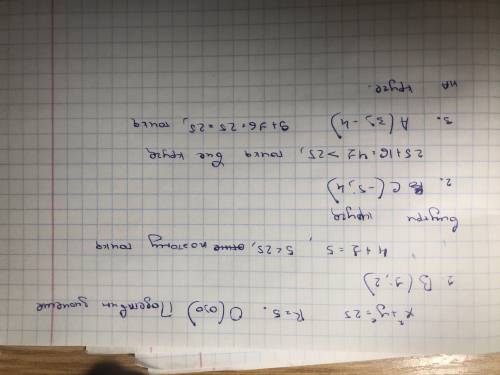 x²+y²=25 R=5. O(0;0) Подставим значение
1. B(1; 2)
4+1=5, 5<25, поэтому точка
внутри круга
2. C(-5; 4)
25+16=41>25, точка вне круга
3. A(3; -4) 9+16=25=25, точка
на круге.